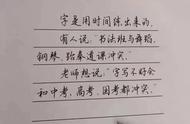 字是用时间练出来的,
有人说,"书法班与舞蹈,
钢琴、跆拳道课冲突,"
老师想说,"字写不好会
和中考,高考,国考都冲突,"